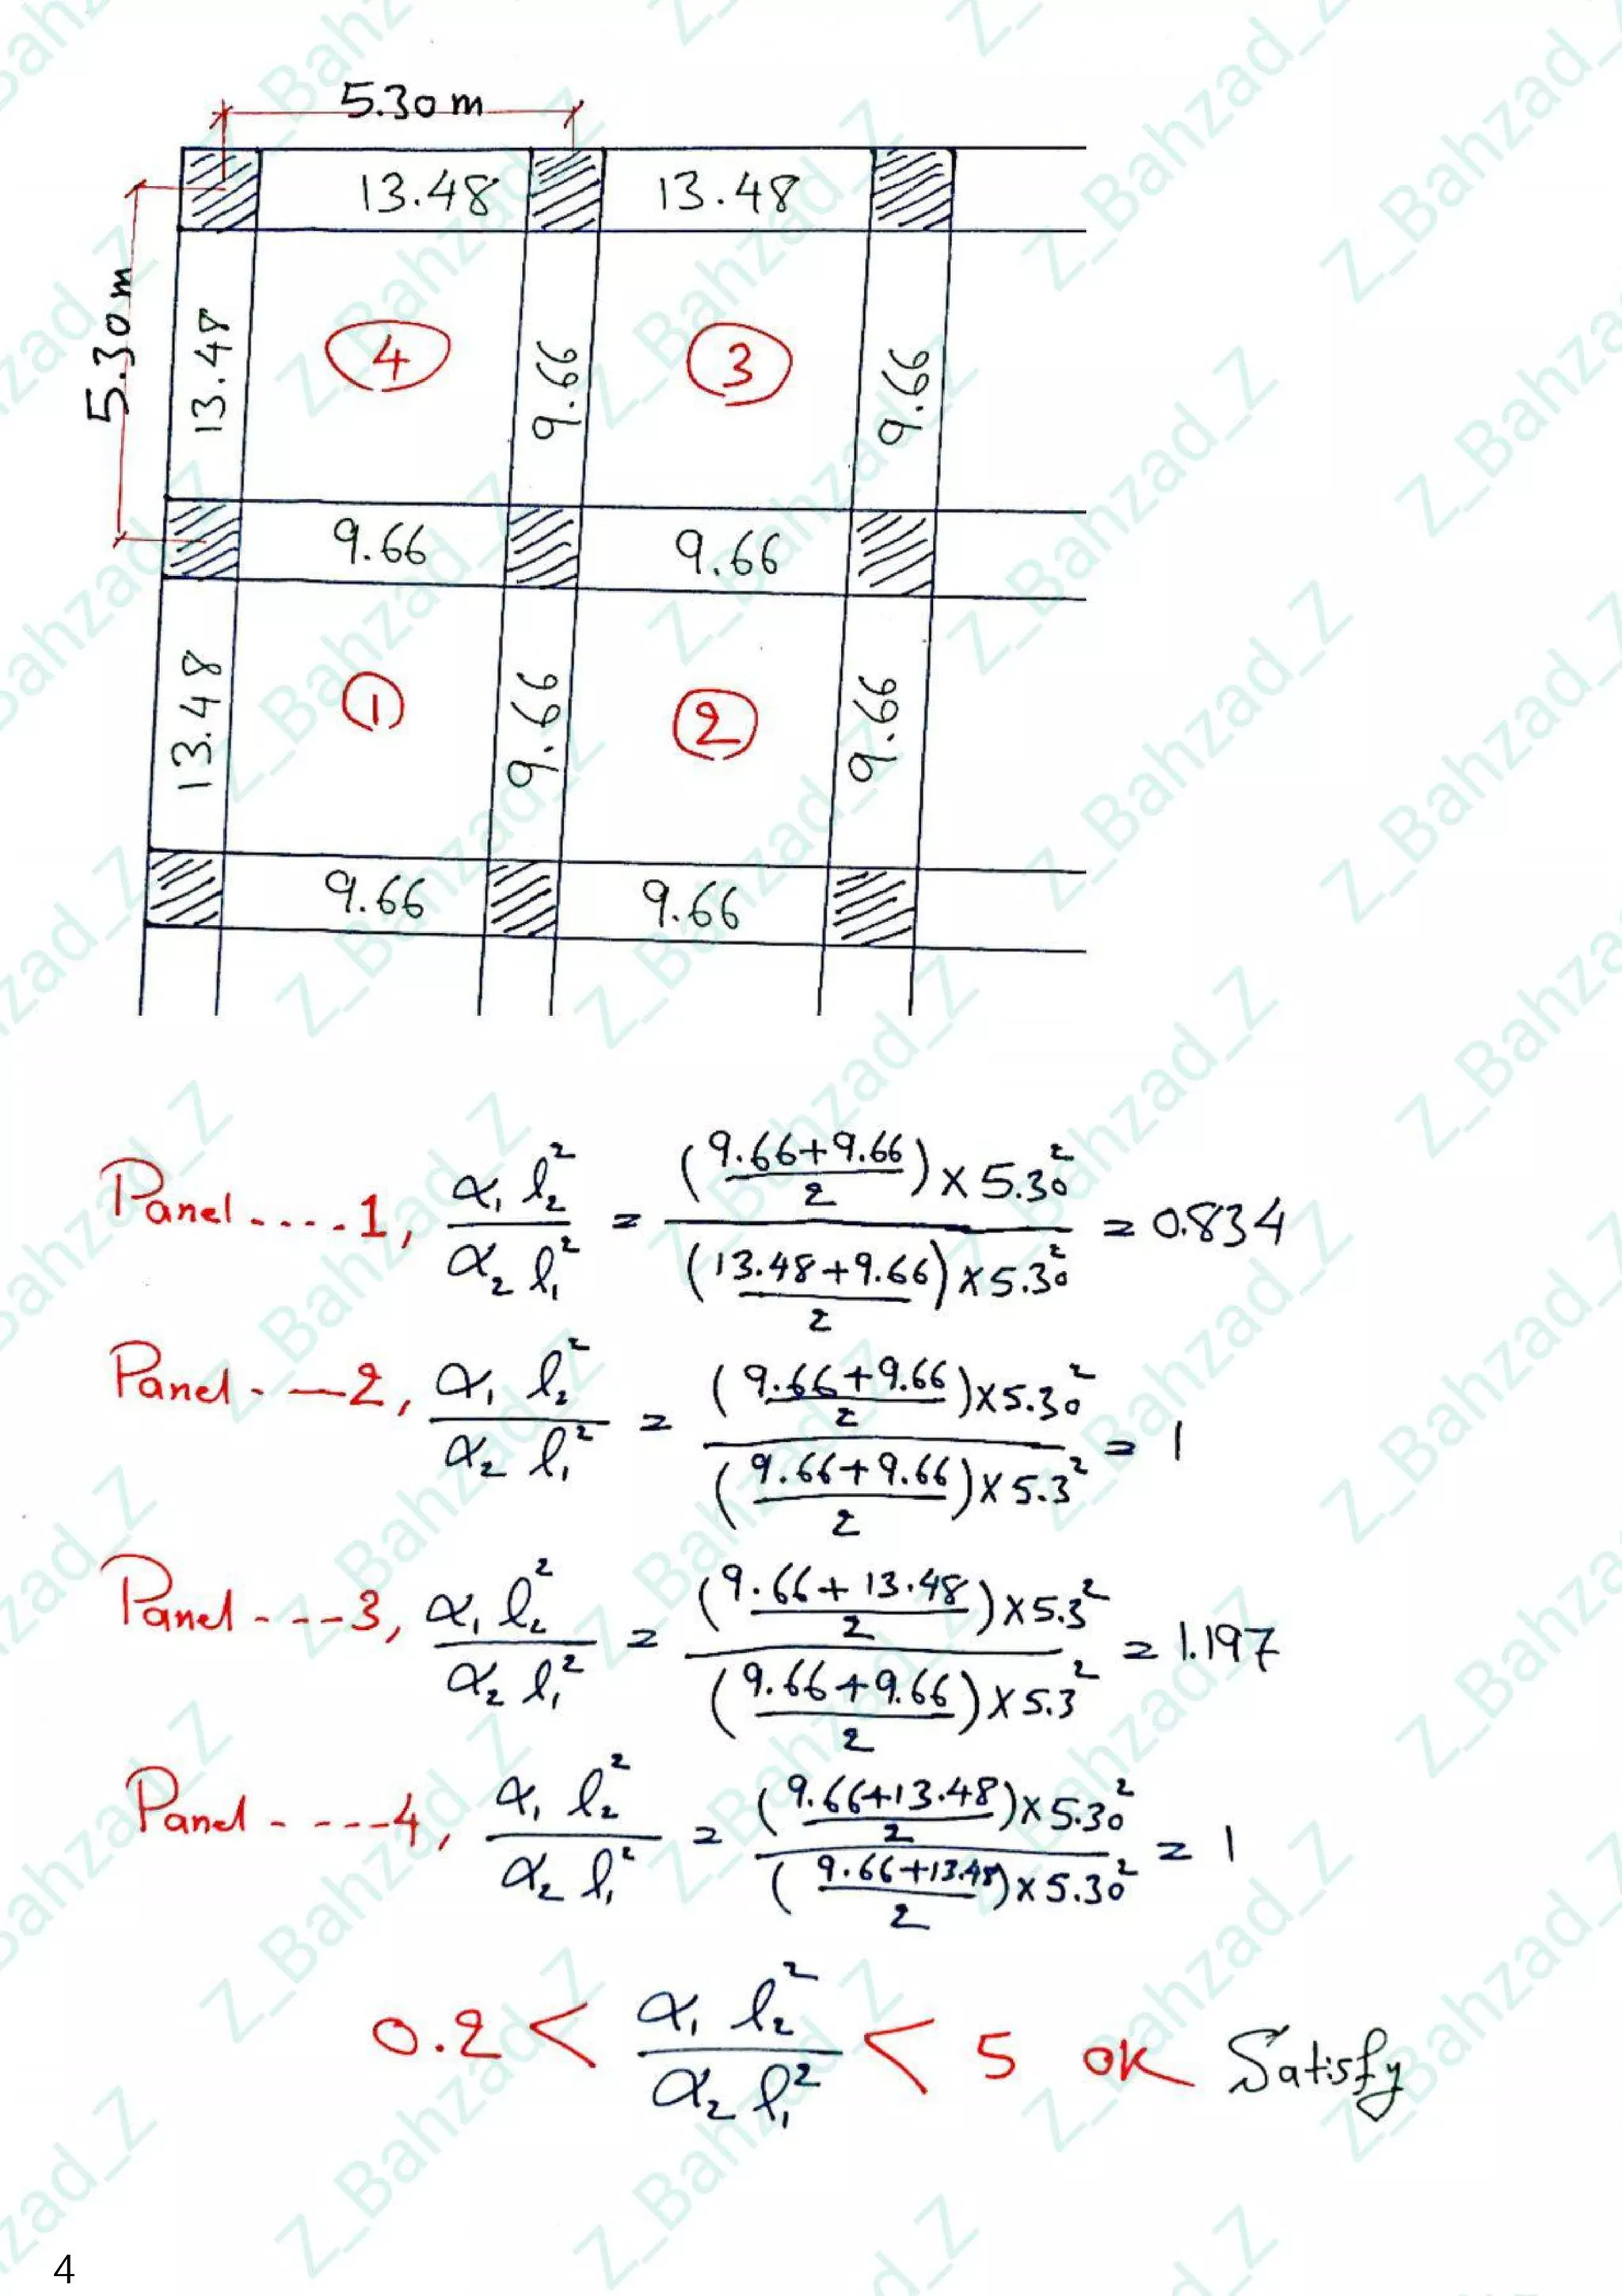 5.30 m
13.48 13.48
5.30 m
13.48
4
9.66
3
9.66
9.66 9.66
13.48
1
9.66
2
9.66
9.66 9.66
Panel ....1, α₁ l₂² / α₂ l₁² = ((9.66+9.66)/2) × 5.30² / ((13.48+9.66)/2) × 5.30² = 0.834
Panel - —2, α₁ l₂² / α₂ l₁² = ((9.66+9.66)/2) × 5.30² / ((9.66+9.66)/2) × 5.3² = 1
Panel - ---3, α₁ l₂² / α₂ l₁² = ((9.66+13.48)/2) × 5.3² / ((9.66+9.66)/2) × 5.3² = 1.197
Panel - ----4, α₁ l₂² / α₂ l₁² = ((9.66+13.48)/2) × 5.30² / ((9.66+13.48)/2) × 5.30² = 1
0.2 < α₁ l₂² / α₂ l₁² < 5 OK Satisfy
4
Z_Bahzad_Z